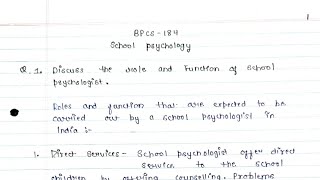 1
BPCS - 184
School psychology
Q.1. Discuss the role and function of school
psychologist.
Roles and function that are expected to be
carried out by a school psychologist in
India :-
1. Direct Services - School psychologist offer direct
service to the school
children by offering counselling. Problems